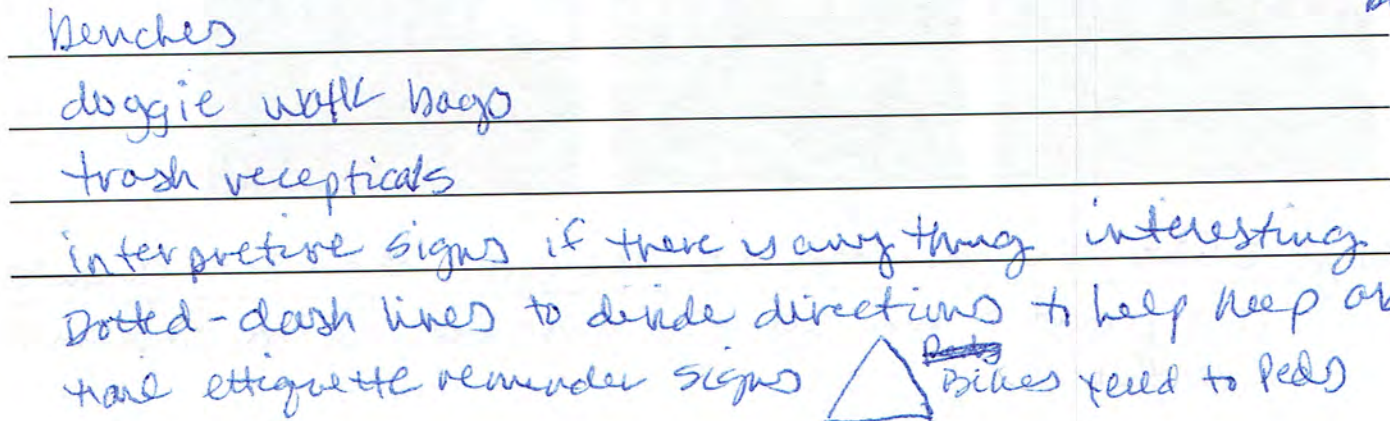 benches
doggie walk bags
trash recepticals
interpretive signs if there is any thing interesting
Dotted-dash lines to divide directions to help keep
trail ettiquette reminder signs Bikes yeild to Peds